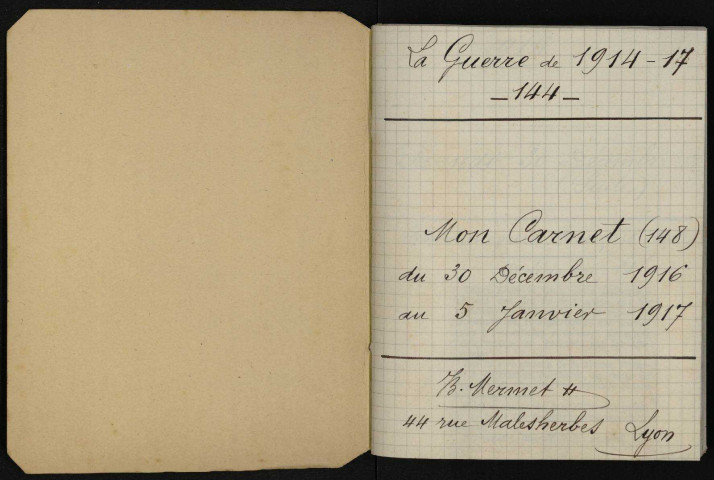 La Guerre de 1914-17
- 144 -
Mon Carnet (148)
du 30 Décembre 1916
au 5 Janvier 1917
B. Mermet
44 rue Malesherbes Lyon